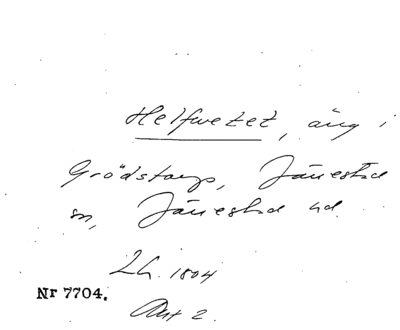 Helfwetet, äng i
Grödstorp, Järrestad
sn, Järrestad hd.
Lh. 1804
Nr 7704.
Akt 2.